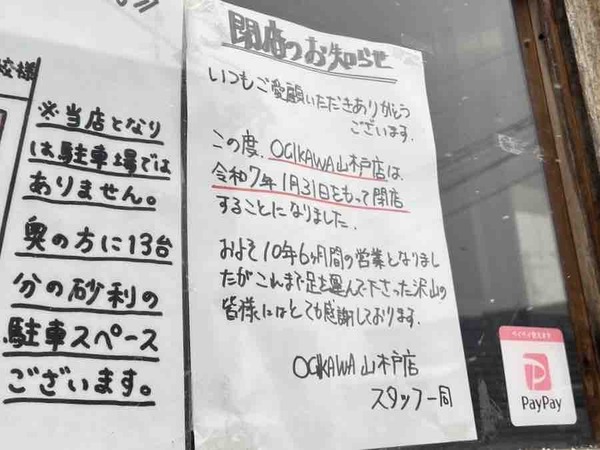 皆様
※当店となり
は駐車場では
ありません。
奥の方に13台
分の砂利の
駐車スペース
ございます。
閉店のお知らせ
いつもご愛顧いただきありがとう
ございます.
この度、OGIKAWA山木戸店は、
令和7年1月31日をもって閉店
することになりました.
およそ10年6ヶ月間の営業となりまし
たがこれまで足を運んで下さった沢山の
皆様にはとても感謝しております.
OGIKAWA山木戸店
スタッフ一同
PayPay